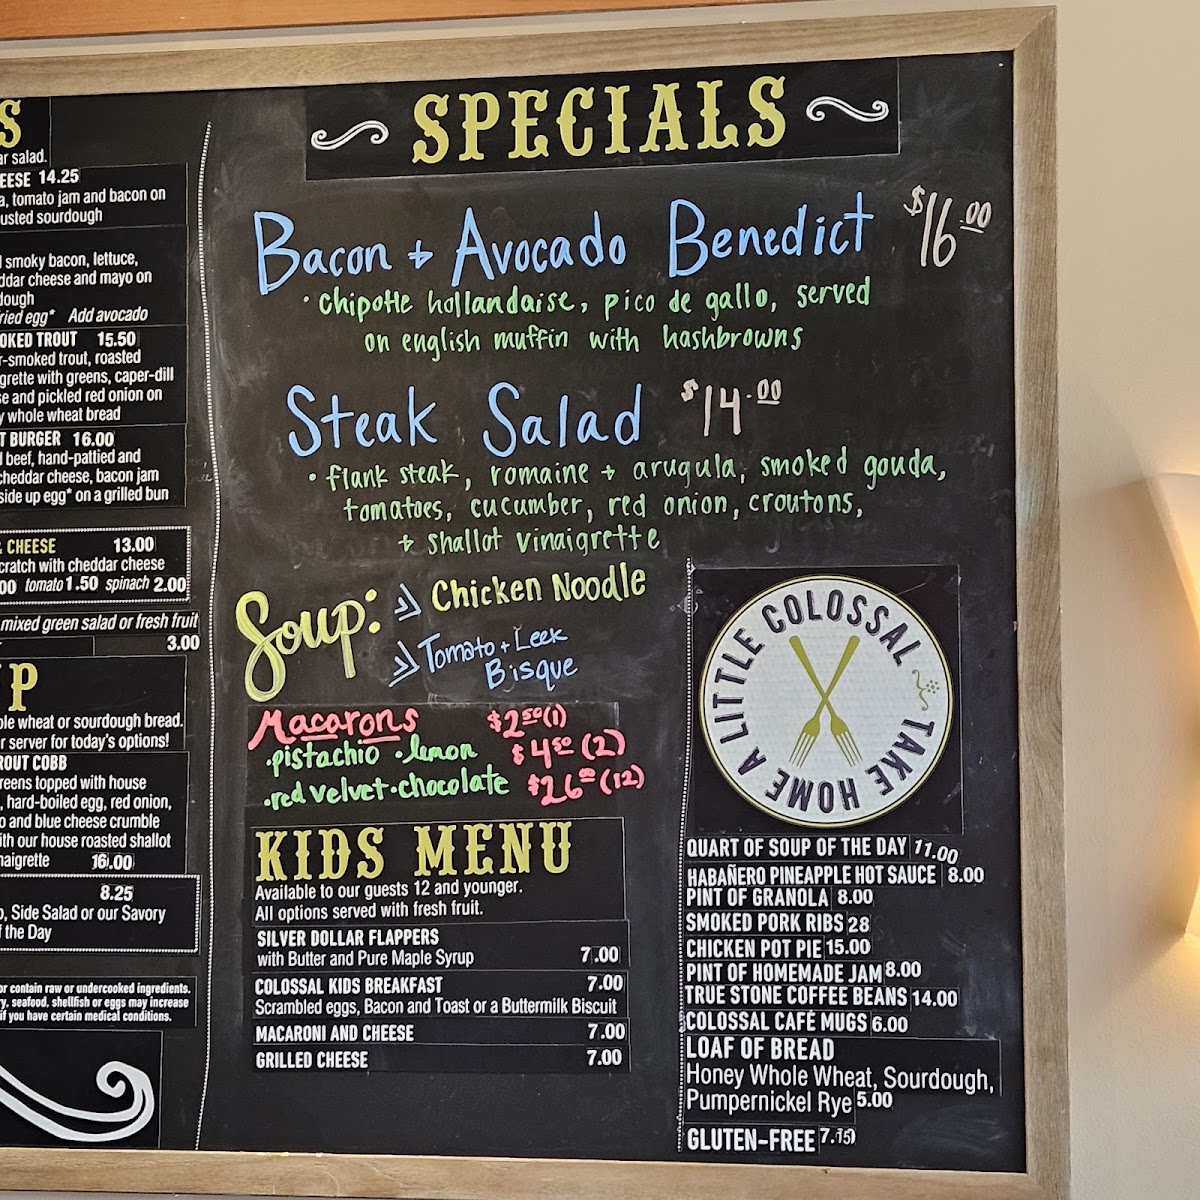 S
ar salad.
EESE 14.25
a, tomato jam and bacon on
usted sourdough
l smoky bacon, lettuce,
ddar cheese and mayo on
dough
ried egg* Add avocado
OKED TROUT 15.50
r-smoked trout, roasted
grette with greens, caper-dill
se and pickled red onion on
y whole wheat bread
T BURGER 16.00
l beef, hand-pattied and
cheddar cheese, bacon jam
side up egg* on a grilled bun
& CHEESE 13.00
cratch with cheddar cheese
00 tomato 1.50 spinach 2.00
mixed green salad or fresh fruit
3.00
UP
ole wheat or sourdough bread.
r server for today's options!
ROUT COBB
reens topped with house
, hard-boiled egg, red onion,
o and blue cheese crumble
ith our house roasted shallot
naigrette 16.00
8.25
o, Side Salad or our Savory
f the Day
or contain raw or undercooked ingredients.
ry, seafood, shellfish or eggs may increase
if you have certain medical conditions.
SPECIALS
Bacon + Avocado Benedict $16.00
• chipotle hollandaise, pico de gallo, served
on english muffin with hashbrowns
Steak Salad $14.00
• flank steak, romaine + arugula, smoked gouda,
tomatoes, cucumber, red onion, croutons,
+ shallot vinaigrette
Soup: Chicken Noodle
Tomato + Leek
Bisque
Macarons $2.50 (1)
•pistachio •lemon $4.50 (2)
•red velvet •chocolate $26.00 (12)
KIDS MENU
Available to our guests 12 and younger.
All options served with fresh fruit.
SILVER DOLLAR FLAPPERS
with Butter and Pure Maple Syrup 7.00
COLOSSAL KIDS BREAKFAST 7.00
Scrambled eggs, Bacon and Toast or a Buttermilk Biscuit
MACARONI AND CHEESE 7.00
GRILLED CHEESE 7.00
TAKE HOME A LITTLE COLOSSAL
QUART OF SOUP OF THE DAY 11.00
HABAÑERO PINEAPPLE HOT SAUCE 8.00
PINT OF GRANOLA 8.00
SMOKED PORK RIBS 28
CHICKEN POT PIE 15.00
PINT OF HOMEMADE JAM 8.00
TRUE STONE COFFEE BEANS 14.00
COLOSSAL CAFÉ MUGS 6.00
LOAF OF BREAD
Honey Whole Wheat, Sourdough,
Pumpernickel Rye 5.00
GLUTEN-FREE